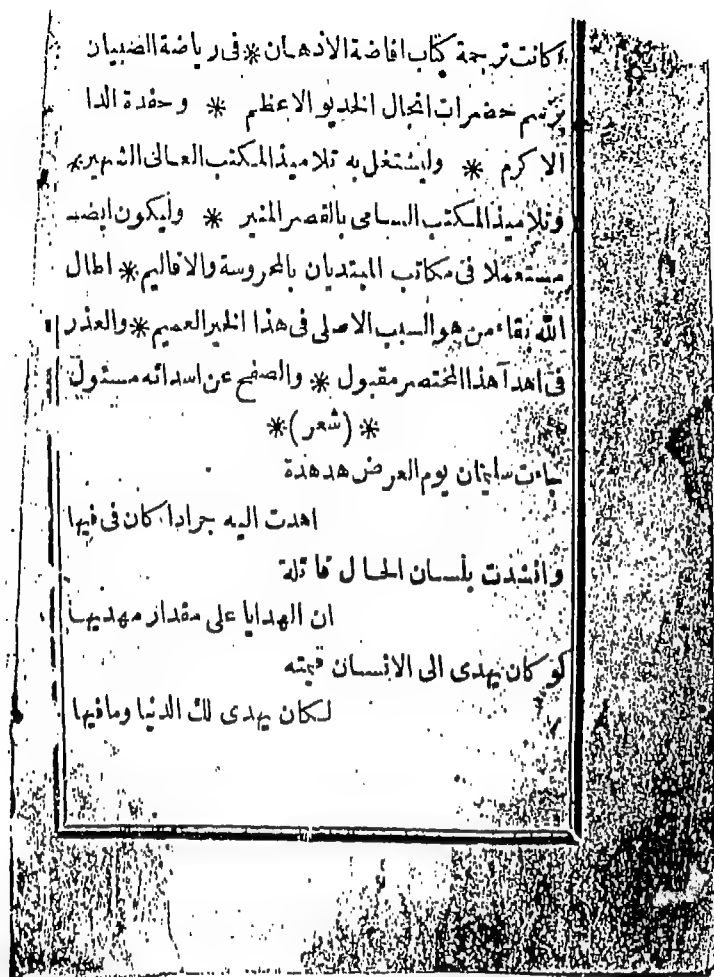 كانت ترجمة كتاب افاضة الاذهان * فى رياضة الصبيان
حضرات انجال الخديو الاعظم * وحفدة الدا
الاكرم * وليشتغل به تلاميذ المكتب العالى الشهير *
وتلاميذ المكتب السامى بالقصر المنير * وليكون ايضـ
مستعملا فى مكاتب المبتديان بالمحروسة والاقاليم * اطال
الله بقاء من هو السبب الاصلى فى هذا الخير العميم * والعذر
فى اهدآ هذا المختصر مقبول * والصفح عن اسدائه مسئول
* (شعر) *
جاءت سليمان يوم العرض هدهدة
اهدت اليه جرادا كان فى فيها
وانشدت بلسان الحال قائلة
ان الهدايا على مقدار مهديها
لو كان يهدى الى الانسان قيمته
لكان يهدى لك الدنيا وما فيها